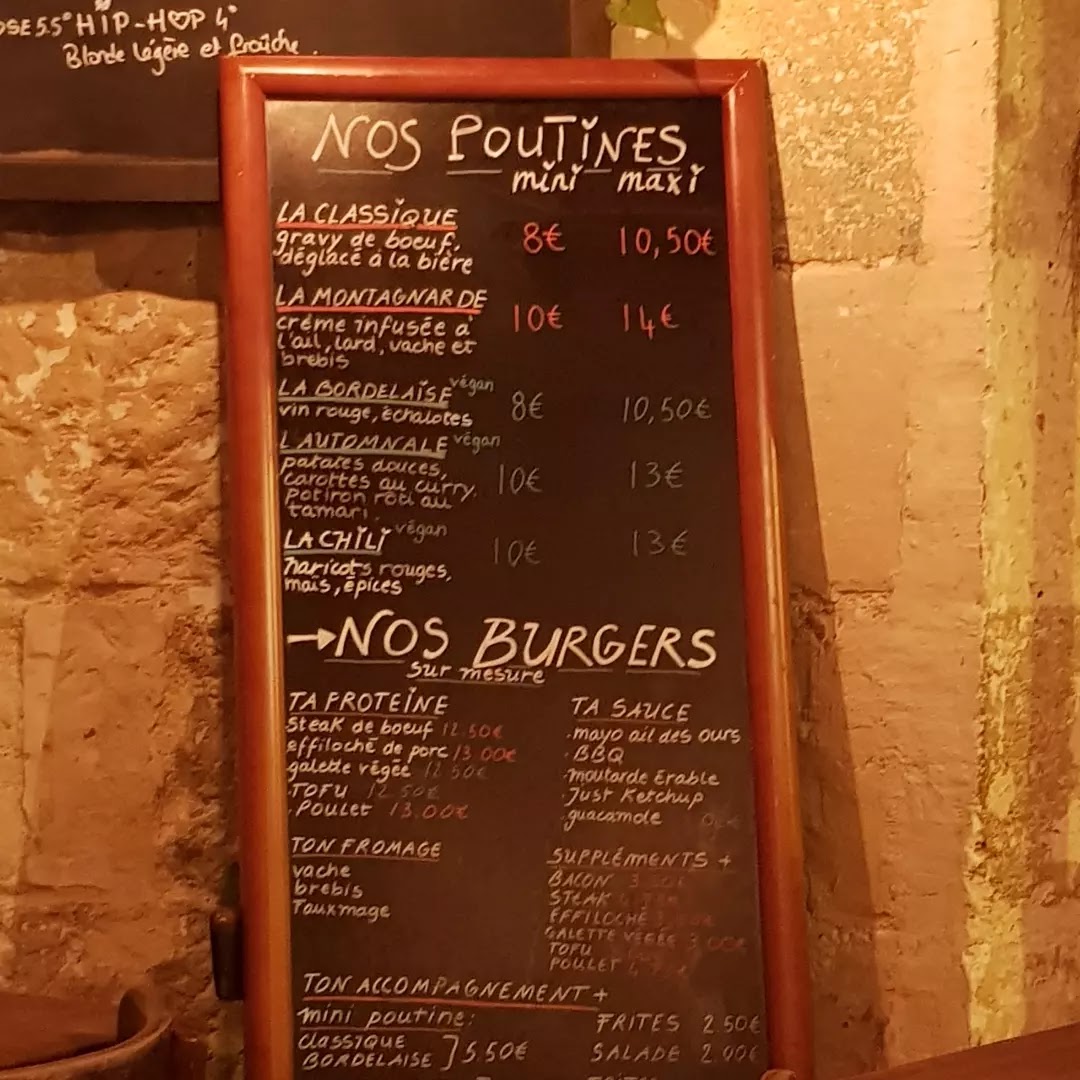 OSE 5.5° HIP-HOP 4°
Blonde légère et fraîche.
NOS POUTINES
mini maxi
LA CLASSIQUE
gravy de boeuf, 8€ 10,50€
déglacé à la bière
LA MONTAGNARDE
crème infusée à 10€ 14€
l'ail, lard, vache et
brebis
LA BORDELAISE végan
vin rouge, échalotes 8€ 10,50€
L'AUTOMNALE végan
patates douces,
carottes au curry. 10€ 13€
Potiron rôti au
tamari
LA CHILI végan
haricots rouges, 10€ 13€
maïs, épices
→NOS BURGERS
sur mesure
TA PROTEÏNE
Steak de boeuf 12.50€
effiloché de porc 13.00€
galette végée 12.50€
.TOFU 12.50€
.Poulet 13.00€
TA SAUCE
.mayo ail des ours
.BBQ
.moutarde Erable
.Just Ketchup
.guacamole
TON FROMAGE
vache
brebis
Fauxmage
SUPPLÉMENTS +
BACON
STEAK
EFFILOCHÉ
GALETTE VÉGÉE 3.00€
TOFU
POULET
TON ACCOMPAGNEMENT +
mini poutine:
classique
BORDELAISE ]5.50€
FRITES 2.50€
SALADE 2.00€